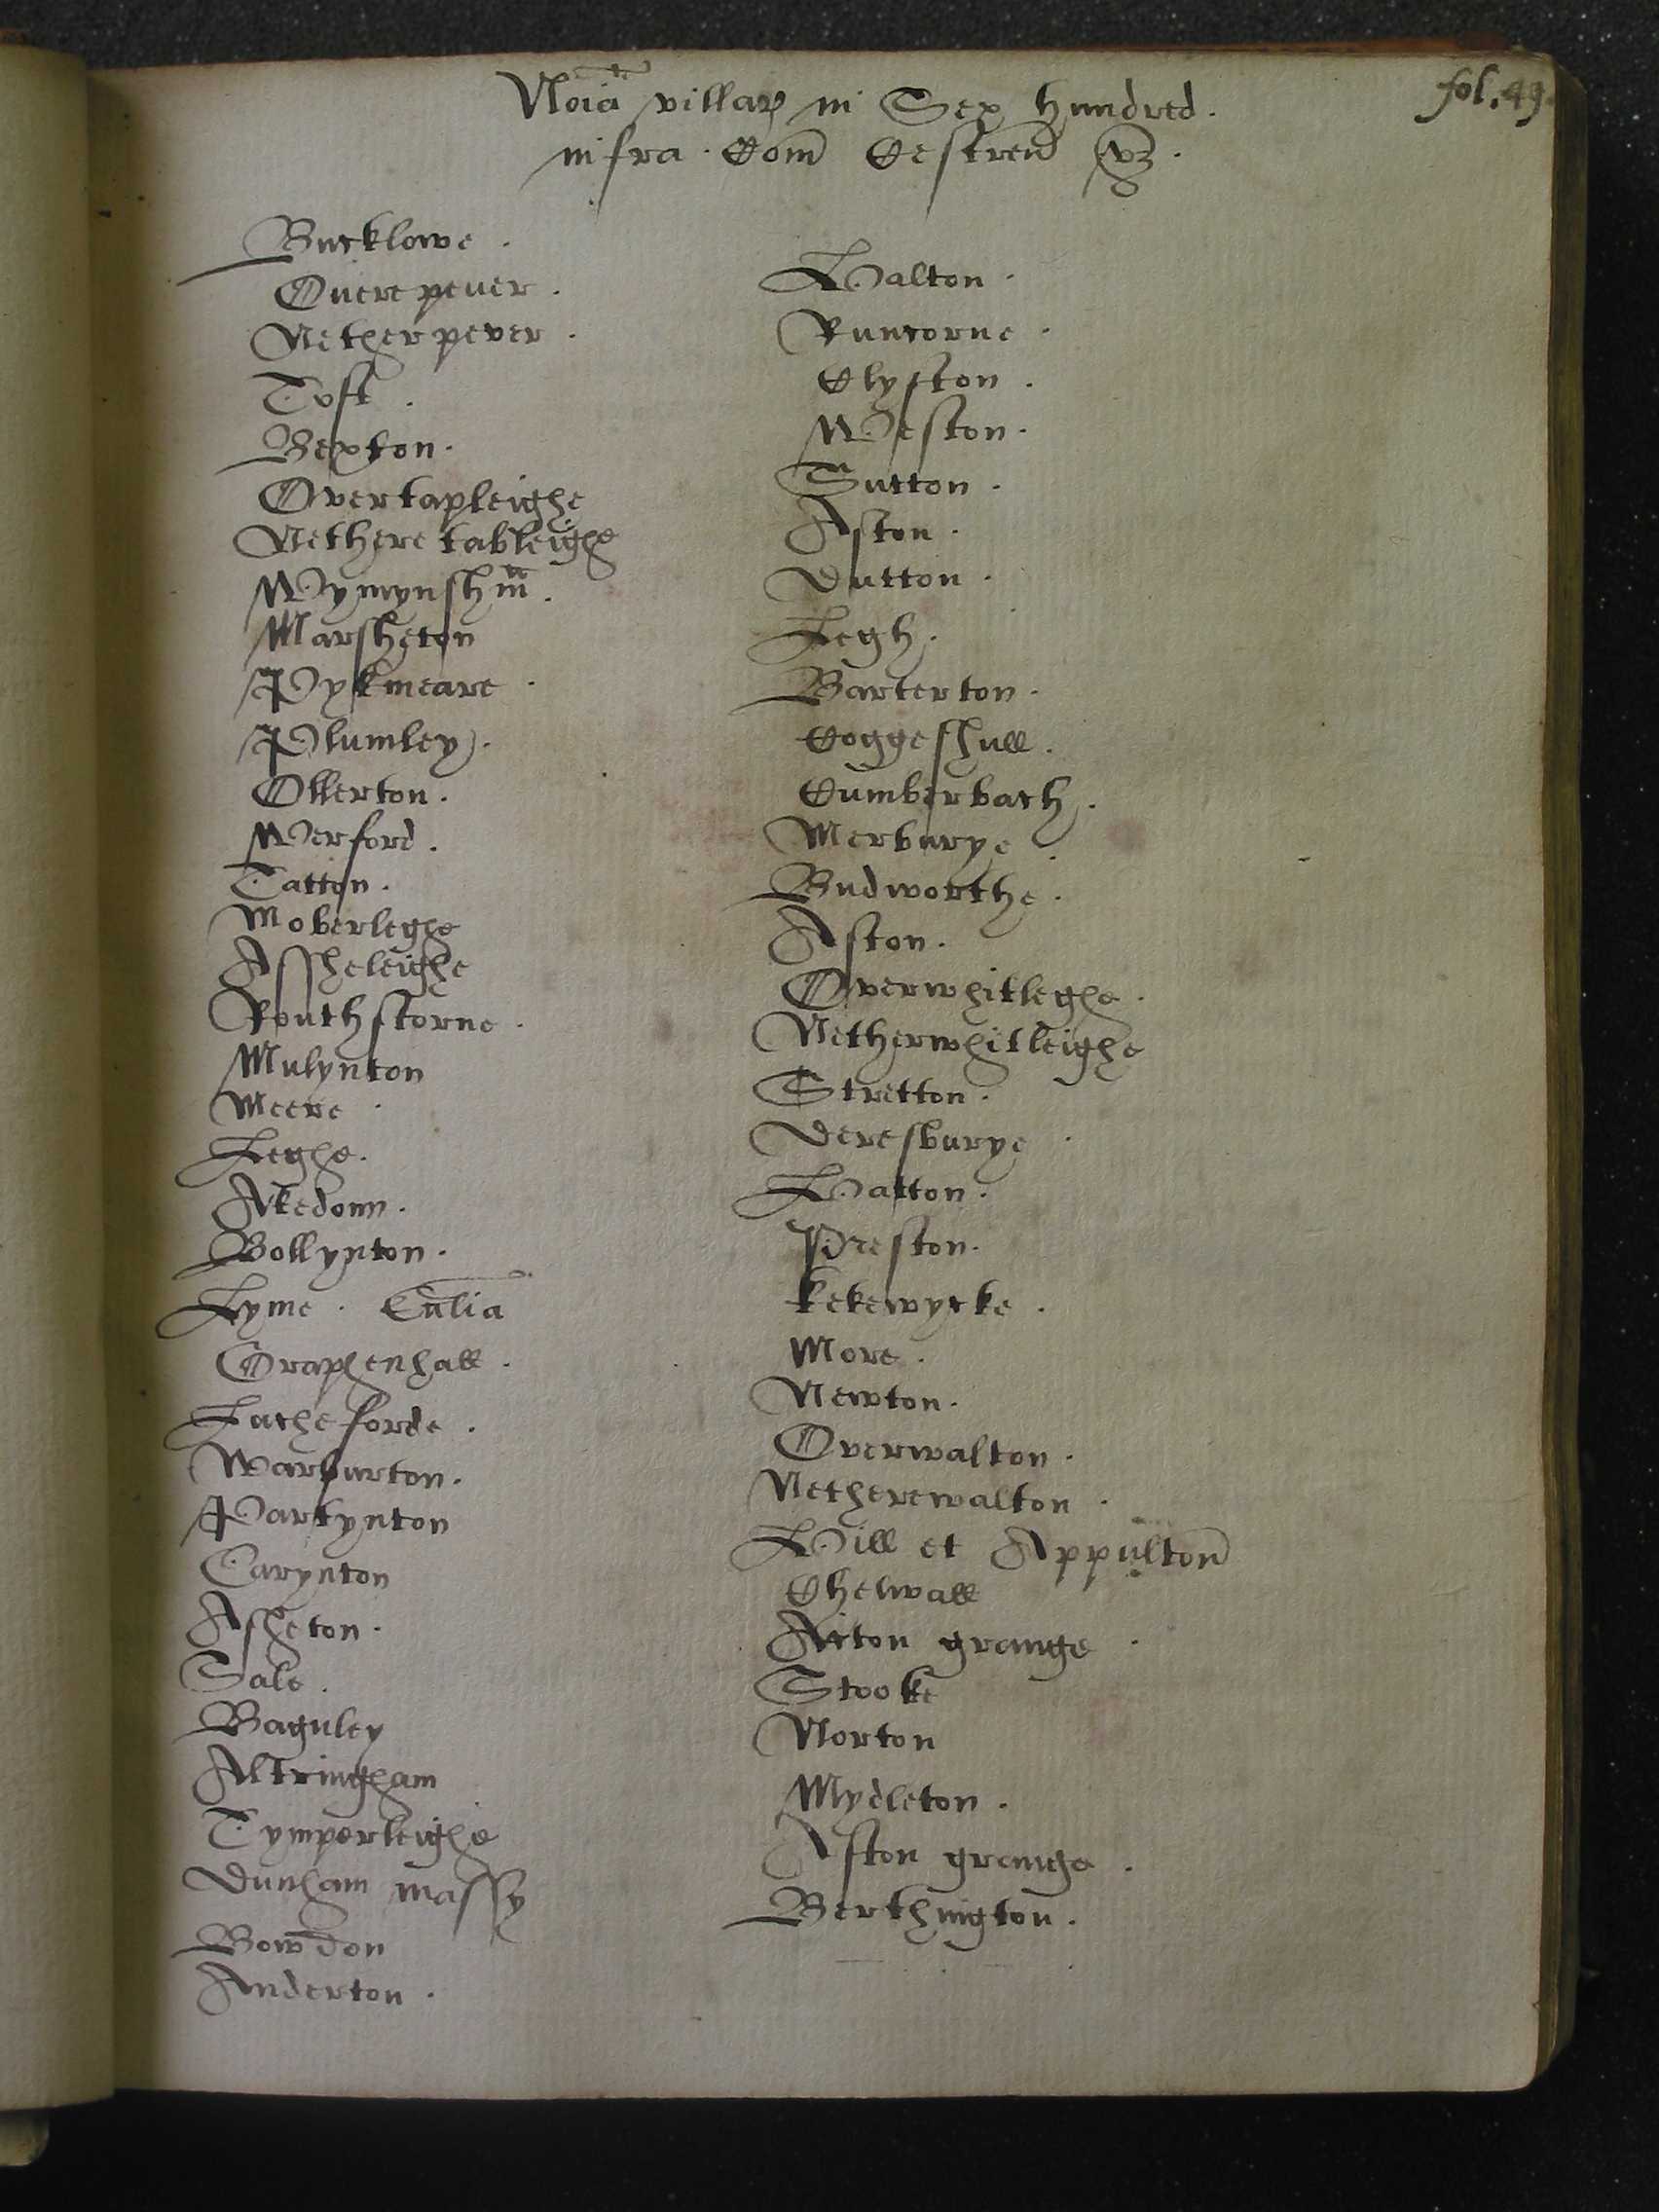 fol. 49.
Noīa villaꝝ in Sex hundred.
infra Com Cestren vꝫ.
Bucklowe.
Overe pever.
Nether pever.
Toft.
Bexton.
Overtapleighe
Nethere tableighe
Wymynshm̄.
Marsheton
Pykmeare
Plumley.
Ollerton.
Werford.
Tatton.
Moberleghe
Assheleighe
Routhstorne.
Mulynton
Meere
Leghe.
Akedonn.
Bollynton.
Lyme.
Graphenhall.
Lacheforde.
Warburton.
Partynton
Carynton
Asheton.
Sale.
Baguley
Altringham
Tymperleighe
Dunham massy
Bowdon
Anderton.
Halton.
Runcorne.
Clyfton.
Weston.
Sutton.
Aston.
Dutton.
Legh.
Barterton.
Coggeshull.
Cumberbach.
Merburye
Budworthe.
Aston.
Overwhitleghe.
Netherwhitleighe
Stretton.
Deresburye
Hatton.
Preston.
kekewycke.
More.
Newton.
Overwalton.
Netherewalton
Hill et Appulton
Thelwall
Acton graunge
Stooke
Norton
Mydleton.
Aston graunge.
Berthington.